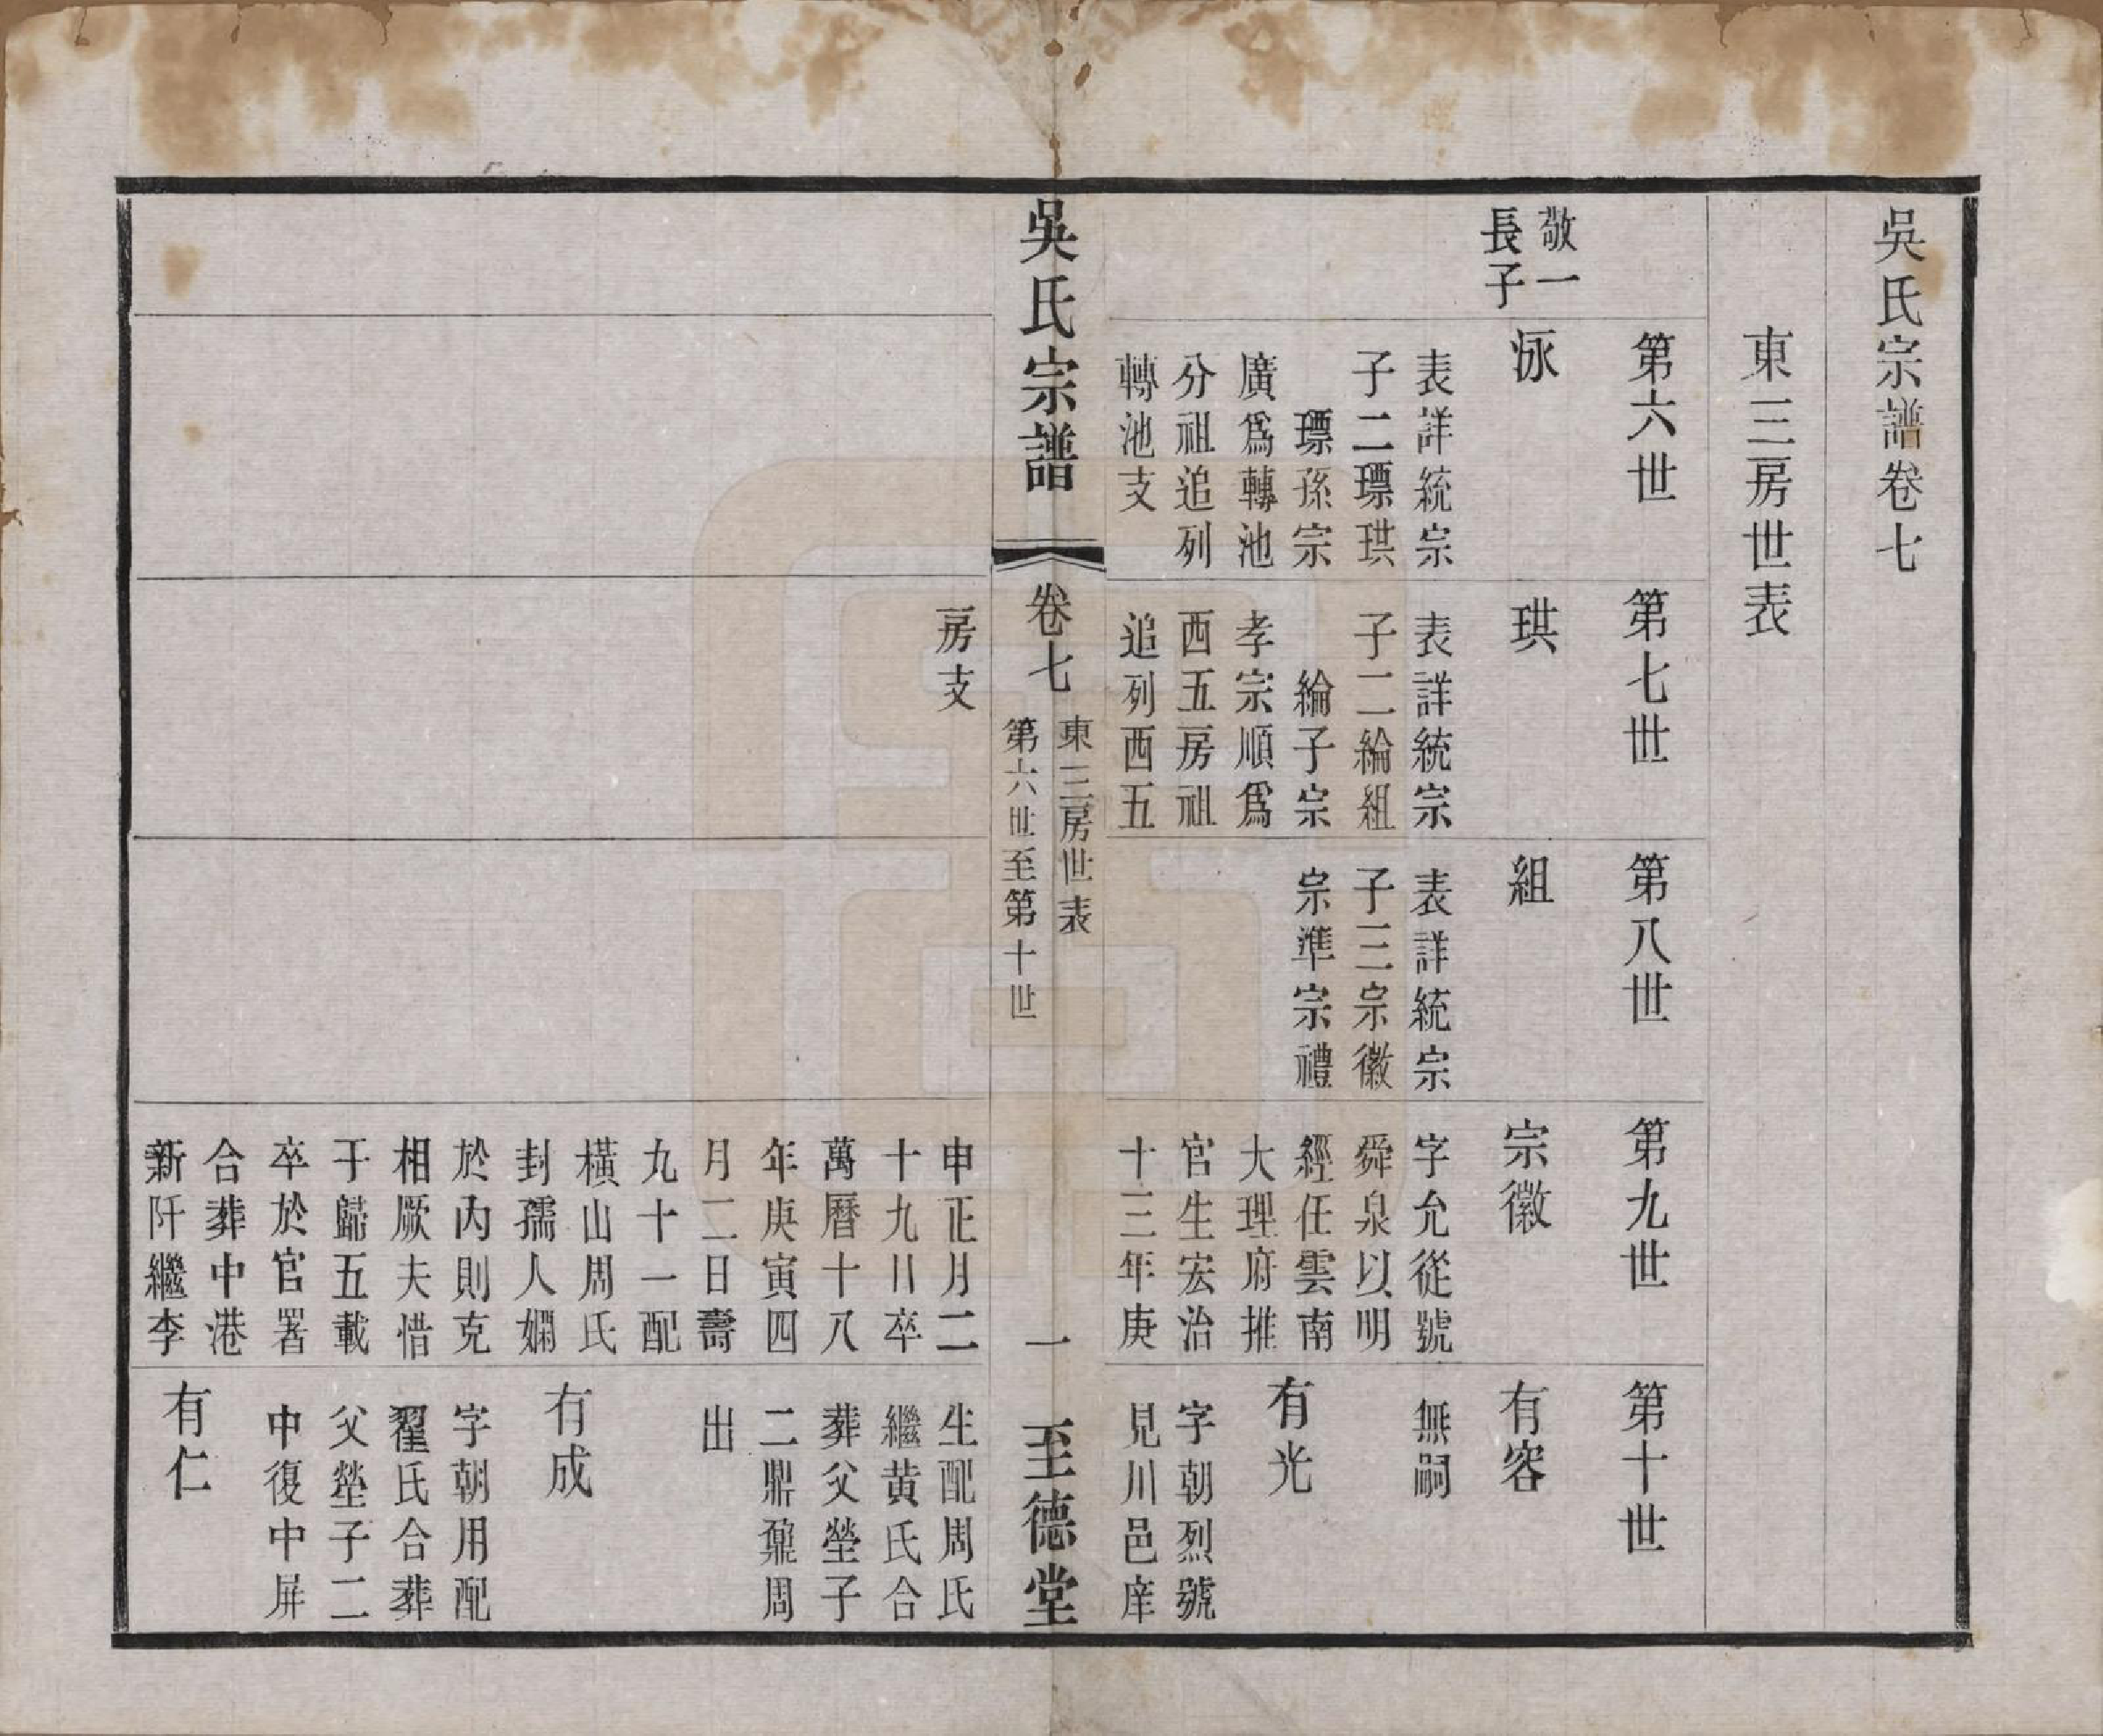 吳氏宗譜卷七
東三房世表
第六世
第七世
第八世
第九世
第十世
敬一
長子
泳
表詳統宗
子二瓢珙
瓢孫宗
廣爲轉池
分祖追列
轉池支
珙
表詳統宗
子二綸組
綸子宗
孝宗順爲
西五房祖
追列西五
房支
組
表詳統宗
子三宗徽
宗準宗禮
宗徽
字允從號
舜泉以明
經任雲南
大理府推
官生宏治
十三年庚
申正月二
十九日卒
萬曆十八
年庚寅四
月二日壽
九十一配
橫山周氏
封孺人嫻
於內則克
相厥夫惜
于歸五載
卒於官署
合葬中港
新阡繼李
有容
無嗣
有光
字朝烈號
見川邑庠
生配周氏
繼黄氏合
葬父塋子
二鼎鼐周
出
有成
字朝用配
翟氏合葬
父塋子二
中復中屏
有仁
吳氏宗譜
卷七
東三房世表
第六世至第十世
一
至德堂